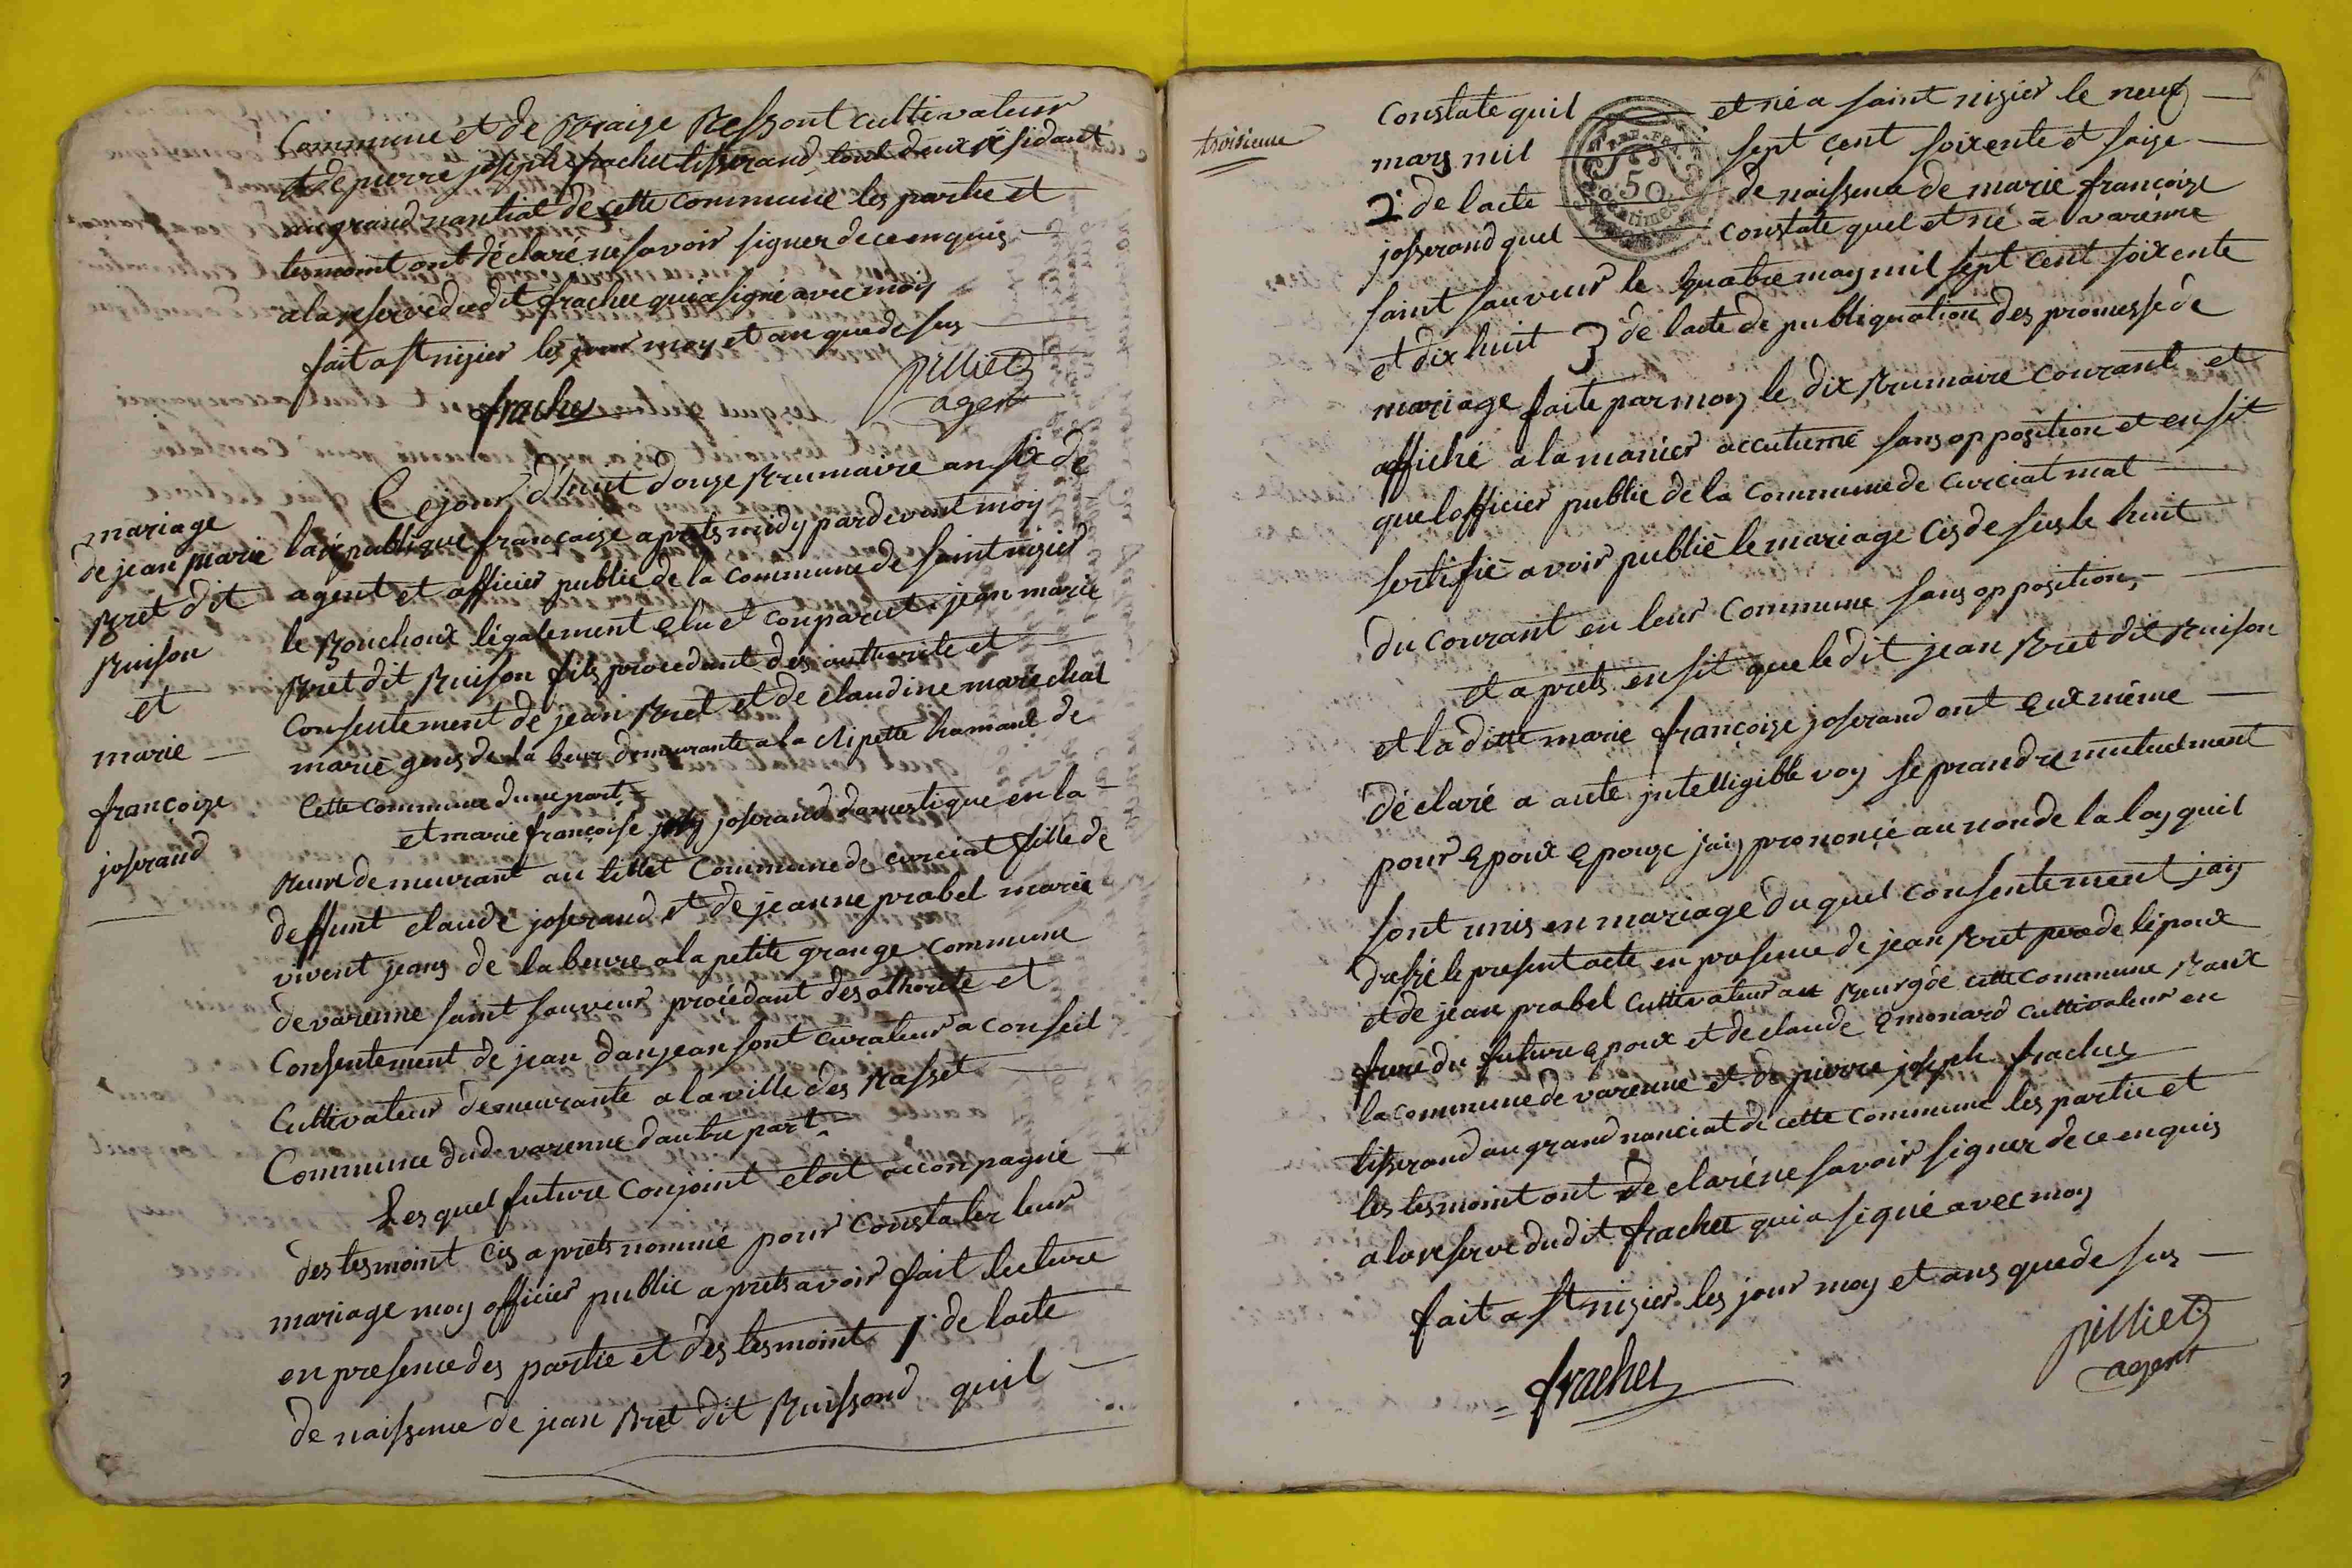 Commune et de Braize Ressont cultivateur
et de pierre joseph frachet tisserand tout deux résidant
au grand nantiat de cette commune les partie et
tesmoint ont déclaré ne savoir signer de ce enquis
a la reserve du dit frachet qui a signé avec moy
fait a st nizier les jour moy et an que de sus
frachet
pilliet
agent
mariage
de jean marie
Bret dit
Buison
et
marie
françoize
joserand
Ce jour d'huit douze Brumaire an six de
la république françaize aprets midy pardevant moy
agent et officier public de la commune de saint nizier
le Bouchoux légalement elu et conparut jean marie
Bret dit Buison fils procedant des authorite et
consentement de jean Bret et de claudine marechal
marié gens de la beur demeurante a la clipette hamant de
cette commune dune part
et marie françoise joserand domestique en la
Beure demeurant au tillet commune de curciat fille de
deffunt claude joserand et de jeanne prabel marie
vivent jeans de la beure a la petite grange commune
de varenne saint sauveur procédant des athorite et
Consentement de jean danjean sont curateur a conseil
cultivateur demeurante a la ville des Basset
Commune dud varenne dautre part
Les quel future conjoint etoit acconpagné
des tesmoint cis aprets nommé pour constater leur
mariage moy officier public aprets avoir fait lecture
en presence des partie et des tesmoint 1° de lacte
de naissence de jean Bret dit Buissond quil
troisieme
Constate quil et né a saint nizier le neuf
mars mil sept cent soixente et saize
2° de lacte de naissence de marie françoize
josserand quel constate quel et né a varenne
saint sauveur le quatre may mil sept cent soixente
et dix huit 3 de lacte de publiquation des promesse de
mariage faite par moy le dix Brumaire courant et
affiché a la manier accutumé sans opposition et ensit
quel officier public de la commune de curciat mat
sertifié avoir publié le mariage cis desus le huit
du courant en leur commune sans opposition
et aprets ensit que le dit jean Bret dit Buison
et la ditte marie françoize joserand ont eux même
déclaré a aute jntelligible voy se prandre mutuelment
pour epoux epouze jaiy prononcé au non de la loy quil
sont unis en mariage du quel consentement jaiy
dresé le present acte en presence de jean Bret pere de lépoux
et de jean prabel cultivateur au Bourg de cette commune Baux
frere du future epoux et de claude Emonard cultivateur en
la commune de varenne et de pierre joseph frachet
tisserand au grand nanciat de cette commune les partie et
les tesmoint ont declaré ne savoir signer de ce enquis
a la reserve du dit frachet qui a signé avec moy
fait a st nizier les jour moy et ans que de sus
frachet
pilliet
agent